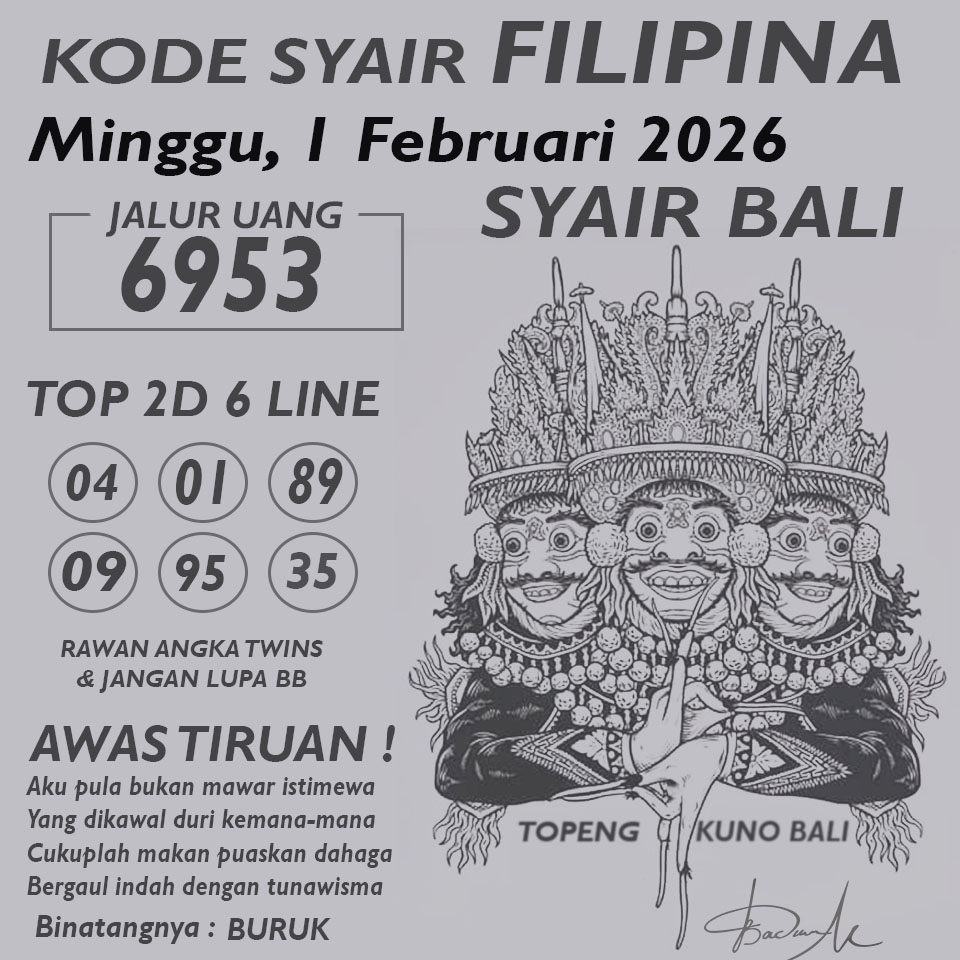 KODE SYAIR FILIPINA
Minggu, 1 Februari 2026
SYAIR BALI
JALUR UANG
6953
TOP 2D 6 LINE
04 01 89
09 95 35
RAWAN ANGKA TWINS
& JANGAN LUPA BB
AWAS TIRUAN !
Aku pula bukan mawar istimewa
Yang dikawal duri kemana-mana
Cukuplah makan puaskan dahaga
Bergaul indah dengan tunawisma
Binatangnya : BURUK
TOPENG KUNO BALI